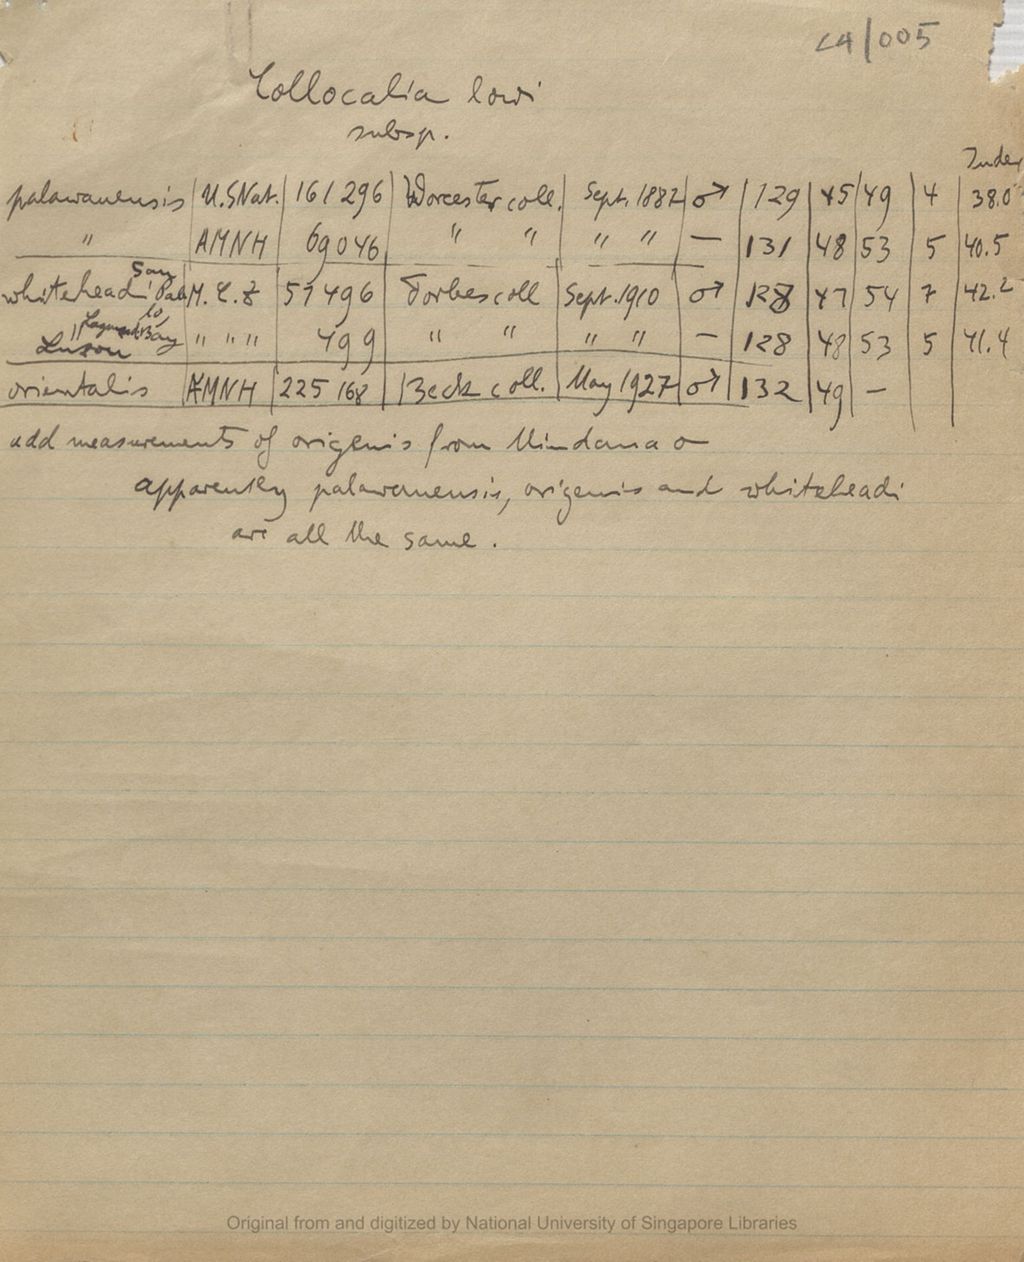 C4/005
Collocalia lowi
subsp.
Index
palawanensis U.S Nat. 161 296 Worcester coll. Sept. 1887 ♂ 129 45 49 4 38.0
" AMNH 69046 " " " " — 131 48 53 5 40.5
whiteheadi M. C. Z 57496 Forbes coll Sept. 1910 ♂ 128 47 54 7 42.2
" Bay Luzon " " " 499 " " " " — 128 48 53 5 41.4
orientalis AMNH 225 168 Beck coll. May 1927 ♂ 132 49 —
add measurements of origenis from Mindanao
apparently palawanensis, origenis and whiteheadi
are all the same.
Original from and digitized by National University of Singapore Libraries